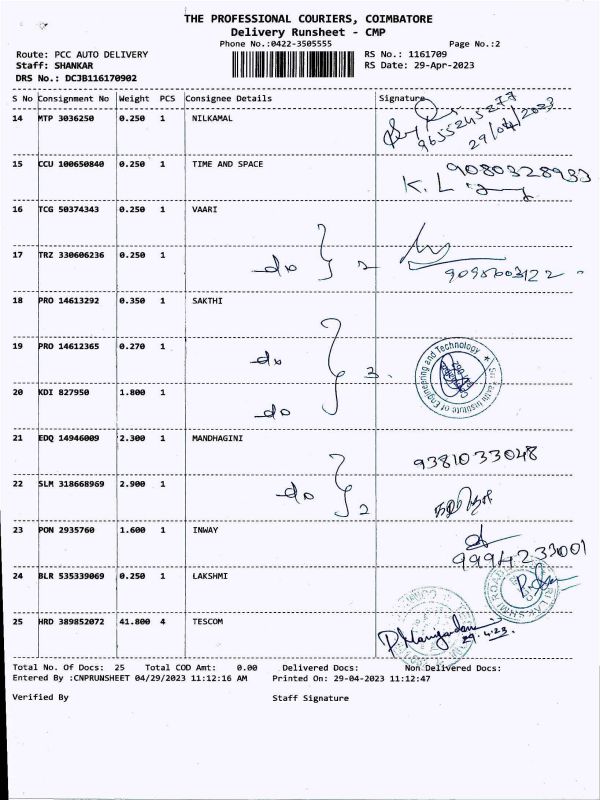 THE PROFESSIONAL COURIERS, COIMBATORE
Delivery Runsheet - CMP
Phone No.:0422-3505555 Page No.:2
Route: PCC AUTO DELIVERY RS No.: 1161709
Staff: SHANKAR RS Date: 29-Apr-2023
DRS No.: DCJB116170902
S No Consignment No Weight PCS Consignee Details Signature
14 MTP 3036250 0.250 1 NILKAMAL
9655245277
29/04/2023
15 CCU 100650840 0.250 1 TIME AND SPACE 9080328933
16 TCG 50374343 0.250 1 VAARI
17 TRZ 330606236 0.250 1 do } 2
18 PRO 14613292 0.350 1 SAKTHI
19 PRO 14612365 0.270 1 do } 3.
Institute of Engineering and Technology
20 KDI 827950 1.800 1 do
21 EDQ 14946009 2.300 1 MANDHAGINI 9381033048
22 SLM 318668969 2.900 1 do } 2
23 PON 2935760 1.600 1 INWAY 9994233001
24 BLR 535339069 0.250 1 LAKSHMI
25 HRD 389852072 41.800 4 TESCOM
29.4.23.
Total No. Of Docs: 25 Total COD Amt: 0.00 Delivered Docs: Non Delivered Docs:
Entered By :CNPRUNSHEET 04/29/2023 11:12:16 AM Printed On: 29-04-2023 11:12:47
Verified By Staff Signature